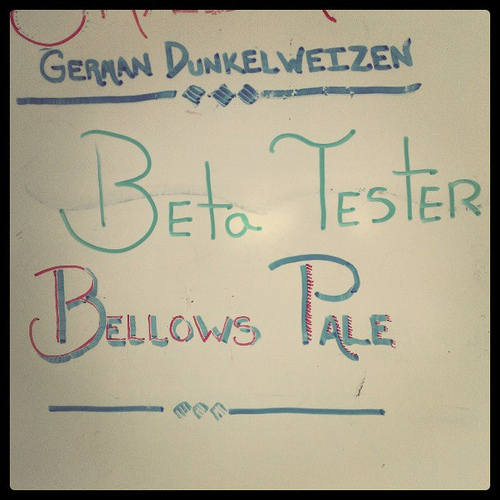 GERMAN DUNKELWEIZEN
BETa TESTER
BELLOWS PALE